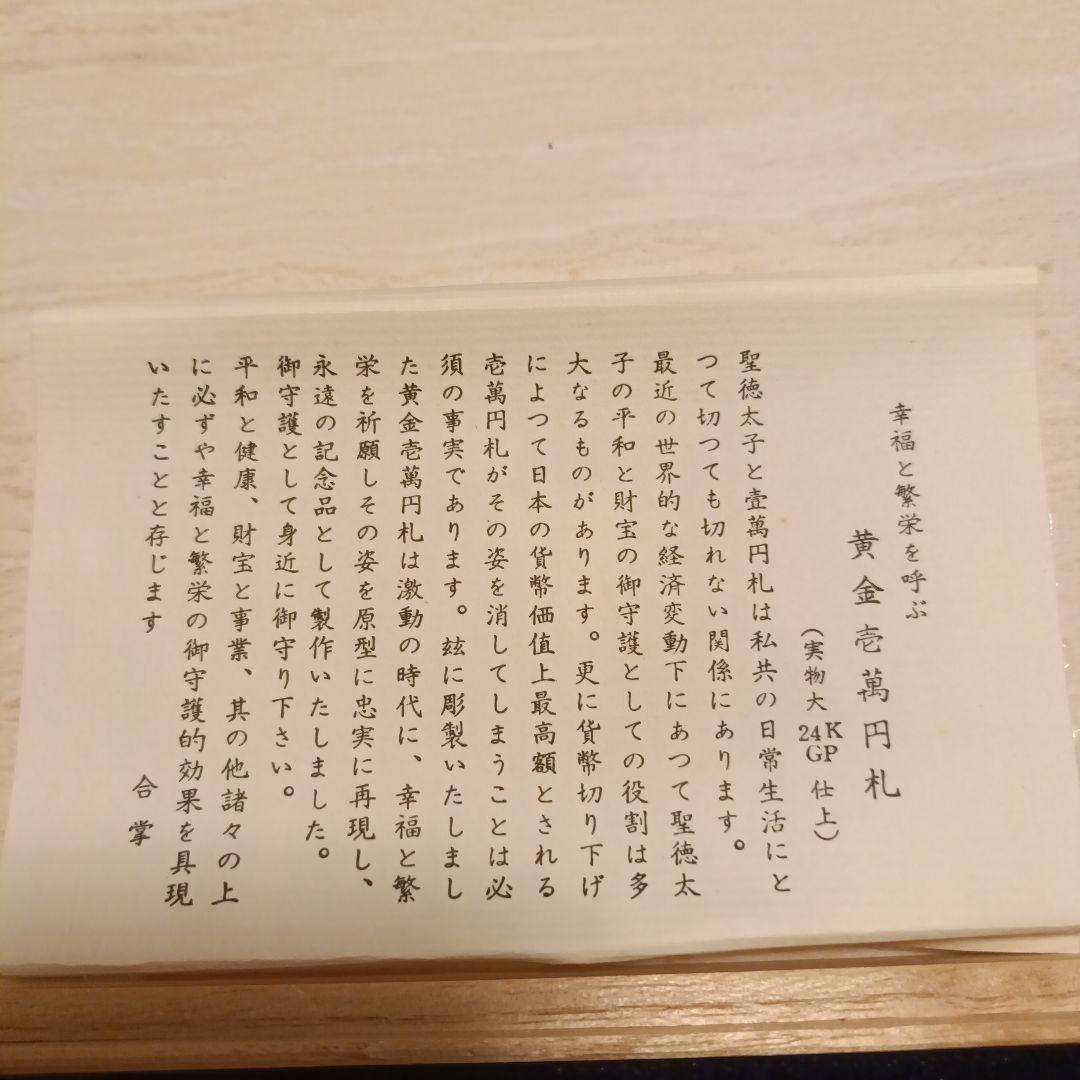 幸福と繁栄を呼ぶ
黄金壱萬円札
(実物大 24KGP 仕上)
聖徳太子と壹萬円札は私共の日常生活にと
つて切つても切れない関係にあります。
最近の世界的な経済変動下にあつて聖徳太
子の平和と財宝の御守護としての役割は多
大なるものがあります。更に貨幣切り下げ
によつて日本の貨幣価値上最高額とされる
壱萬円札がその姿を消してしまうことは必
須の事実であります。玆に彫製いたしまし
た黄金壱萬円札は激動の時代に、幸福と繁
栄を祈願しその姿を原型に忠実に再現し、
永遠の記念品として製作いたしました。
御守護として身近に御守り下さい。
平和と健康、財宝と事業、其の他諸々の上
に必ずや幸福と繁栄の御守護的効果を具現
いたすことと存じます
合掌